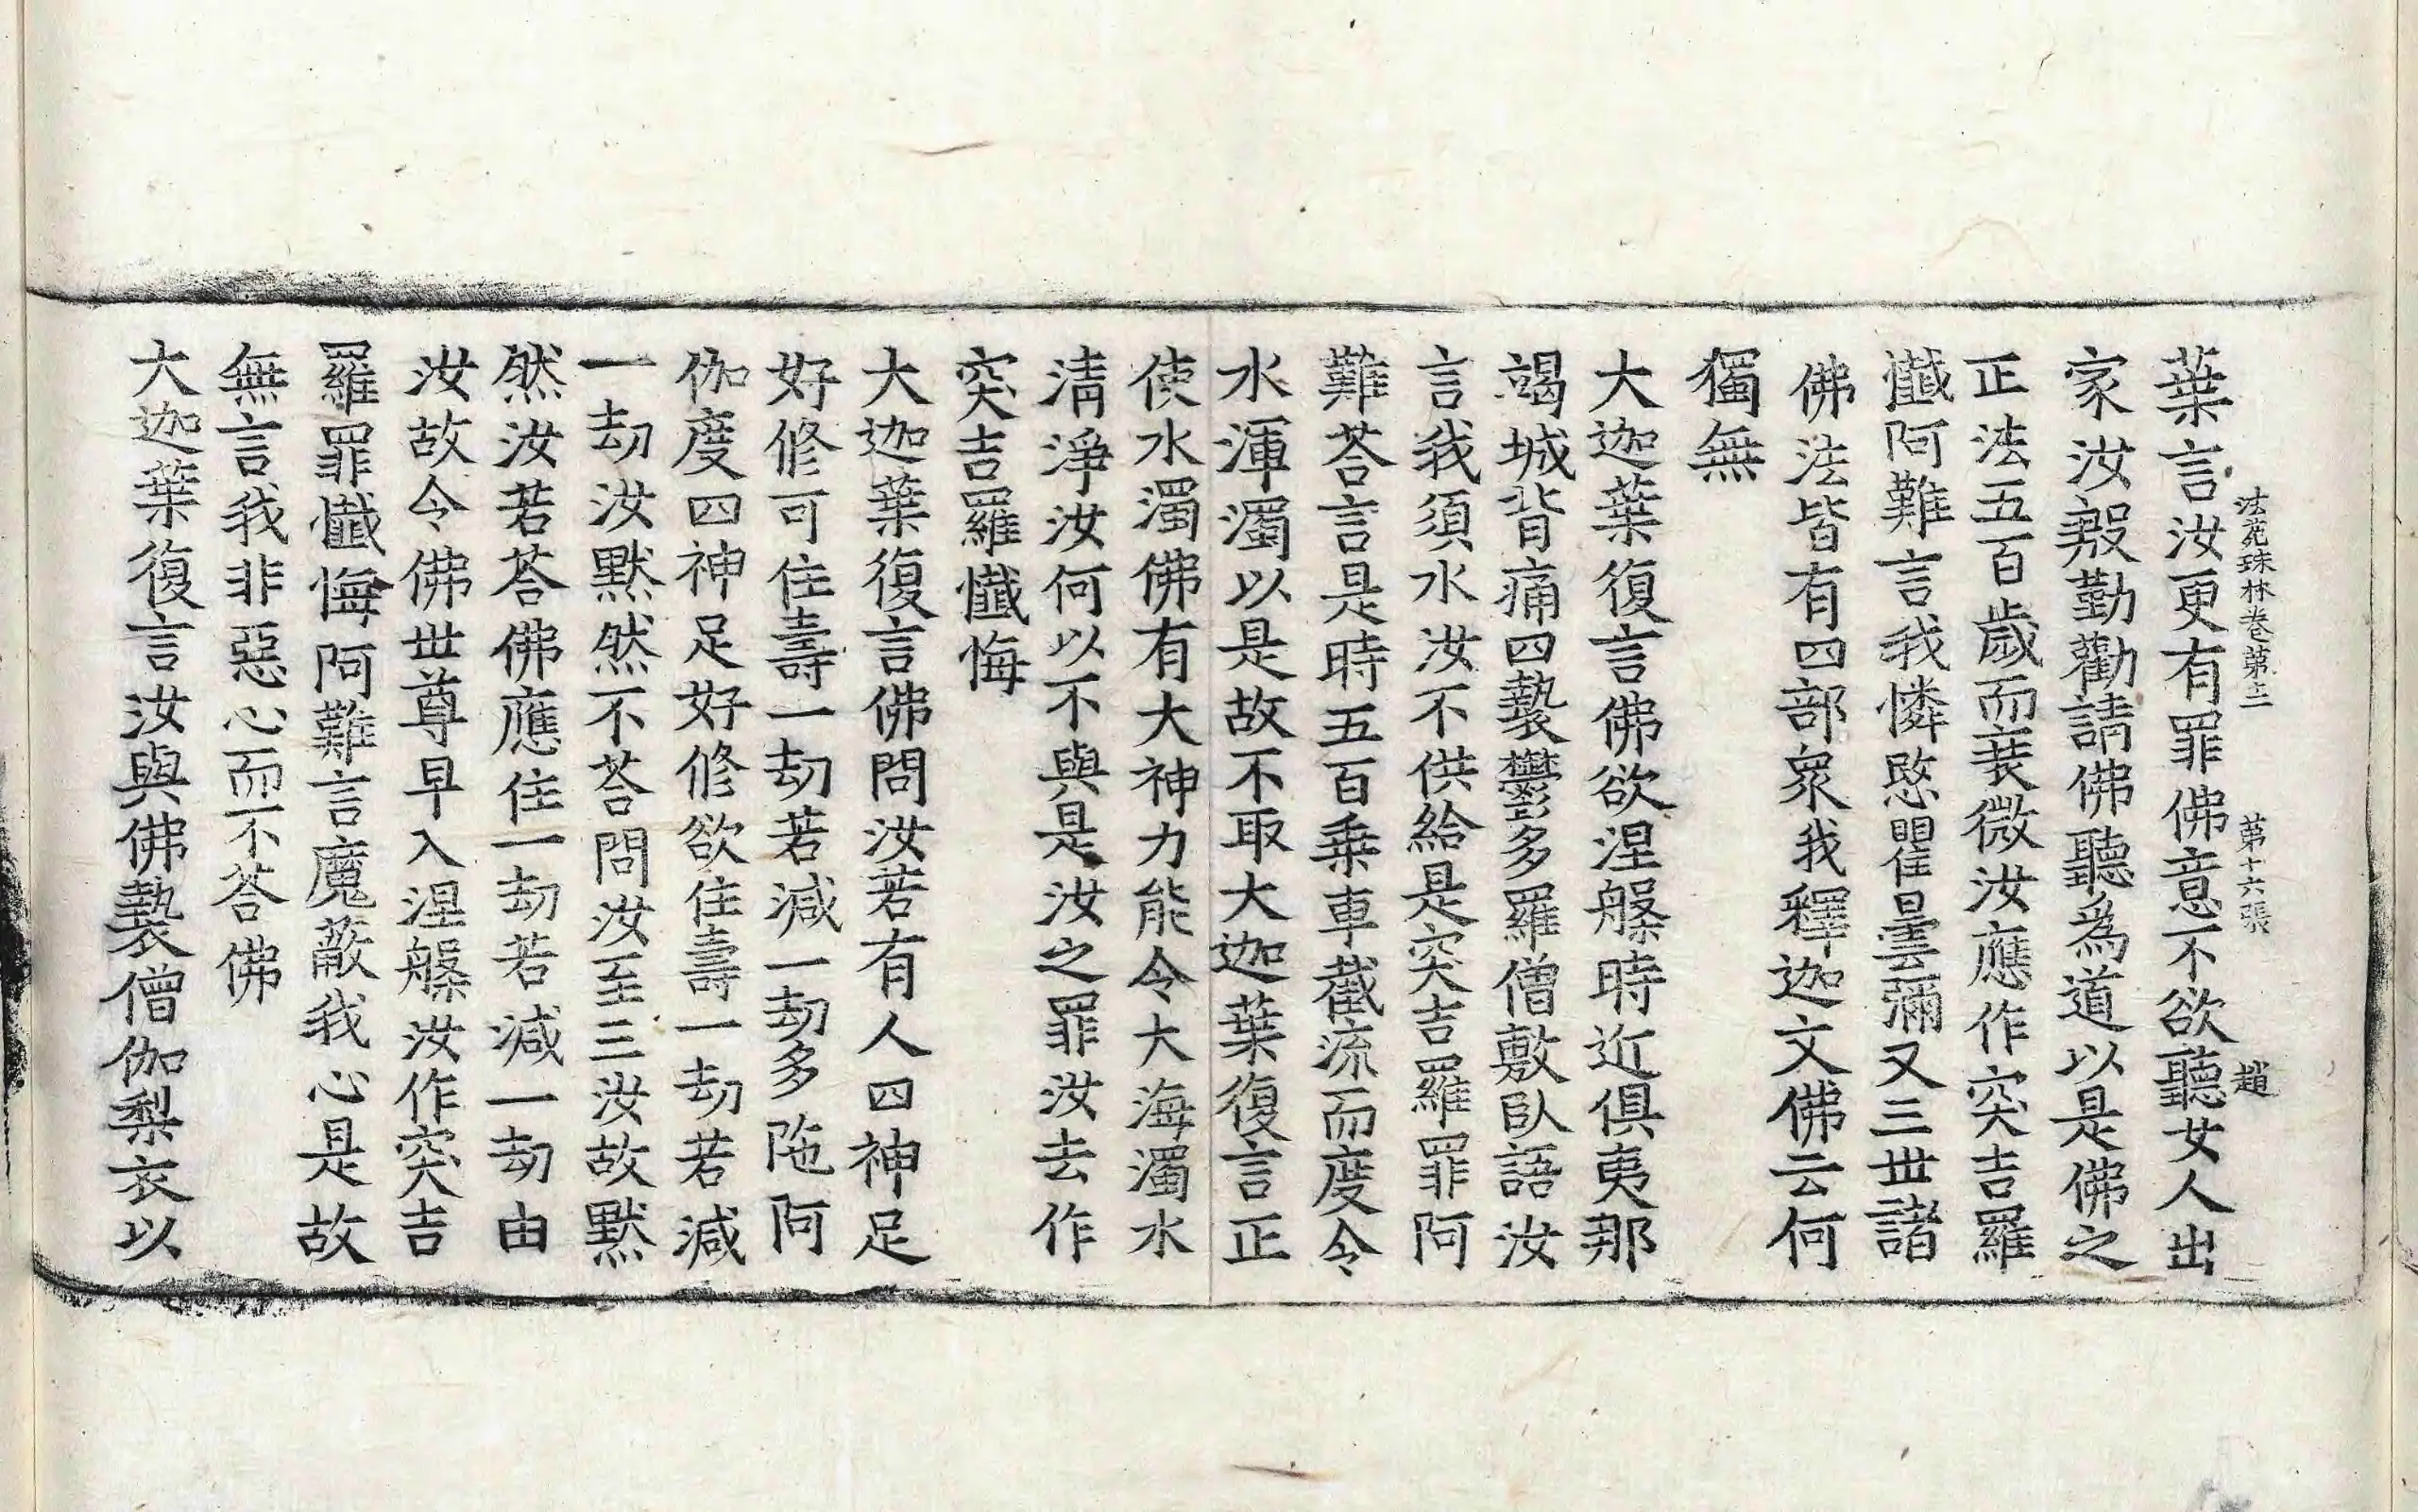 法苑珠林卷第十二 第十六張 趙
葉言汝更有罪佛意不欲聽女人出
家汝殷勤勸請佛聽為道以是佛之
正法五百歲而衰微汝應作突吉羅
懺阿難言我憐愍瞿曇彌又三世諸
佛法皆有四部衆我釋迦文佛云何
獨無
大迦葉復言佛欲涅槃時近俱夷那
竭城背痛四褺欝多羅僧敷臥語汝
言我須水汝不供給是突吉羅罪阿
難荅言是時五百乗車截流而度令
水渾濁以是故不取大迦葉復言正
使水濁佛有大神力能令大海濁水
清淨汝何以不與是汝之罪汝去作
突吉羅懺悔
大迦葉復言佛問汝若有人四神足
好修可住壽一劫若減一劫多陁阿
伽度四神足好修欲住壽一劫若減
一劫汝默然不荅問汝至三汝故默
然汝若荅佛應住一劫若減一劫由
汝故令佛世尊早入涅槃汝作突吉
羅罪懺悔阿難言魔蔽我心是故
無言我非惡心而不荅佛
大迦葉復言汝與佛褺僧伽梨衣以